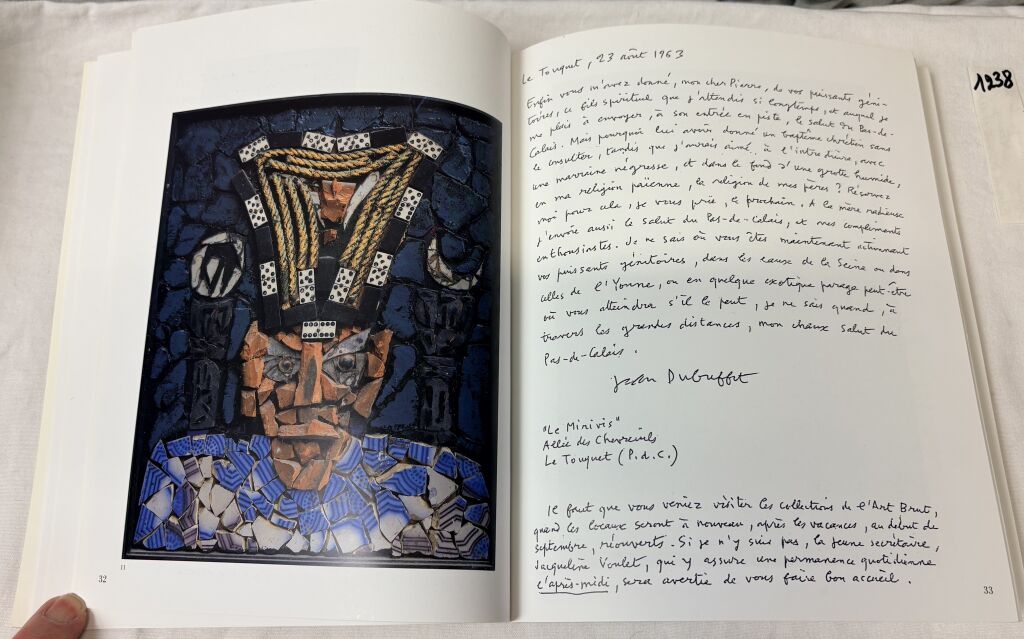 32
11
Le Touquet, 23 août 1963
Enfin vous m'avez donné, mon cher Pierre, de vos puissants géni-
toires, ce fils spirituel que j'attendais si longtemps, et auquel je
me plais à envoyer, à son entrée en piste, le salut du Pas-de-
Calais. Mais pourquoi lui avoir donné un baptême chrétien sans
le consulter, tandis que j'aurais aimé à l'introduire, avec
une marraine négresse, et dans le fond d'une grotte humide,
en ma religion païenne, la religion de mes pères ? Réservez
moi pour cela, je vous prie, le prochain. A la mère radieuse
j'envoie aussi le salut du Pas-de-Calais, et mes compliments
enthousiastes. Je ne sais où vous êtes maintenant activement
vos puissants génitoires, dans les eaux de la Seine ou dans
celles de l'Yonne, ou en quelque exotique parage peut-être
où vous atteindra s'il le peut, je ne sais quand, à
travers les grandes distances, mon chaux salut du
Pas-de-Calais.
Jean Dubuffet
"Le Mirivis"
Allée des Chevreuils
Le Touquet (P.d.C.)
Il faut que vous veniez visiter les collections de l'Art Brut,
quand les locaux seront à nouveau, après les vacances, au début de
septembre, réouverts. Si je n'y suis pas, la jeune secrétaire,
Jacqueline Voulet, qui y assure une permanence quotidienne
l'après-midi, sera avertie de vous faire bon accueil.
33
1238